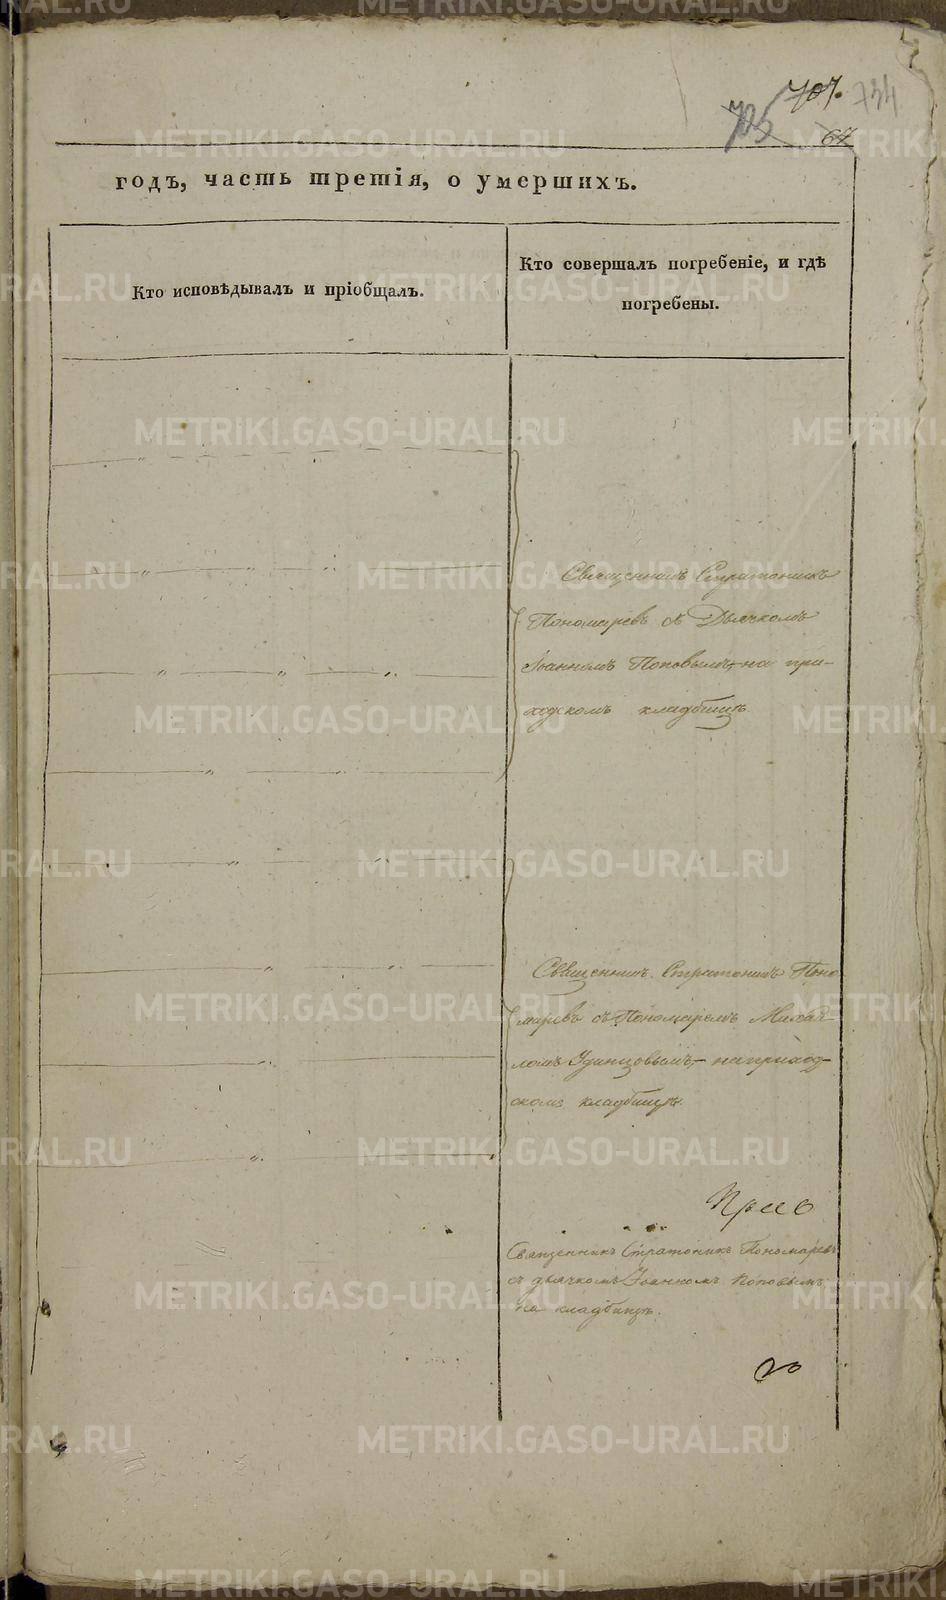 707.
734
705
67
годъ, часть третія, о умершихъ.
Кто исповѣдывалъ и пріобщалъ.
Кто совершалъ погребеніе, и гдѣ
погребены.
Священникъ Стратоникъ
Пономаревъ съ Дьячкомъ
Іоанномъ Поповымъ, на при-
ходскомъ кладбищѣ
Священникъ Стратоникъ Поно
маревъ съ Пономаремъ Михаи
ломъ Удинцовымъ, на приход-
скомъ кладбищѣ.
Священникъ Стратоникъ Пономаревъ
съ дьячкомъ Іоанномъ Поповымъ
на кладбищѣ.
METRIKI.GASO-URAL.RU